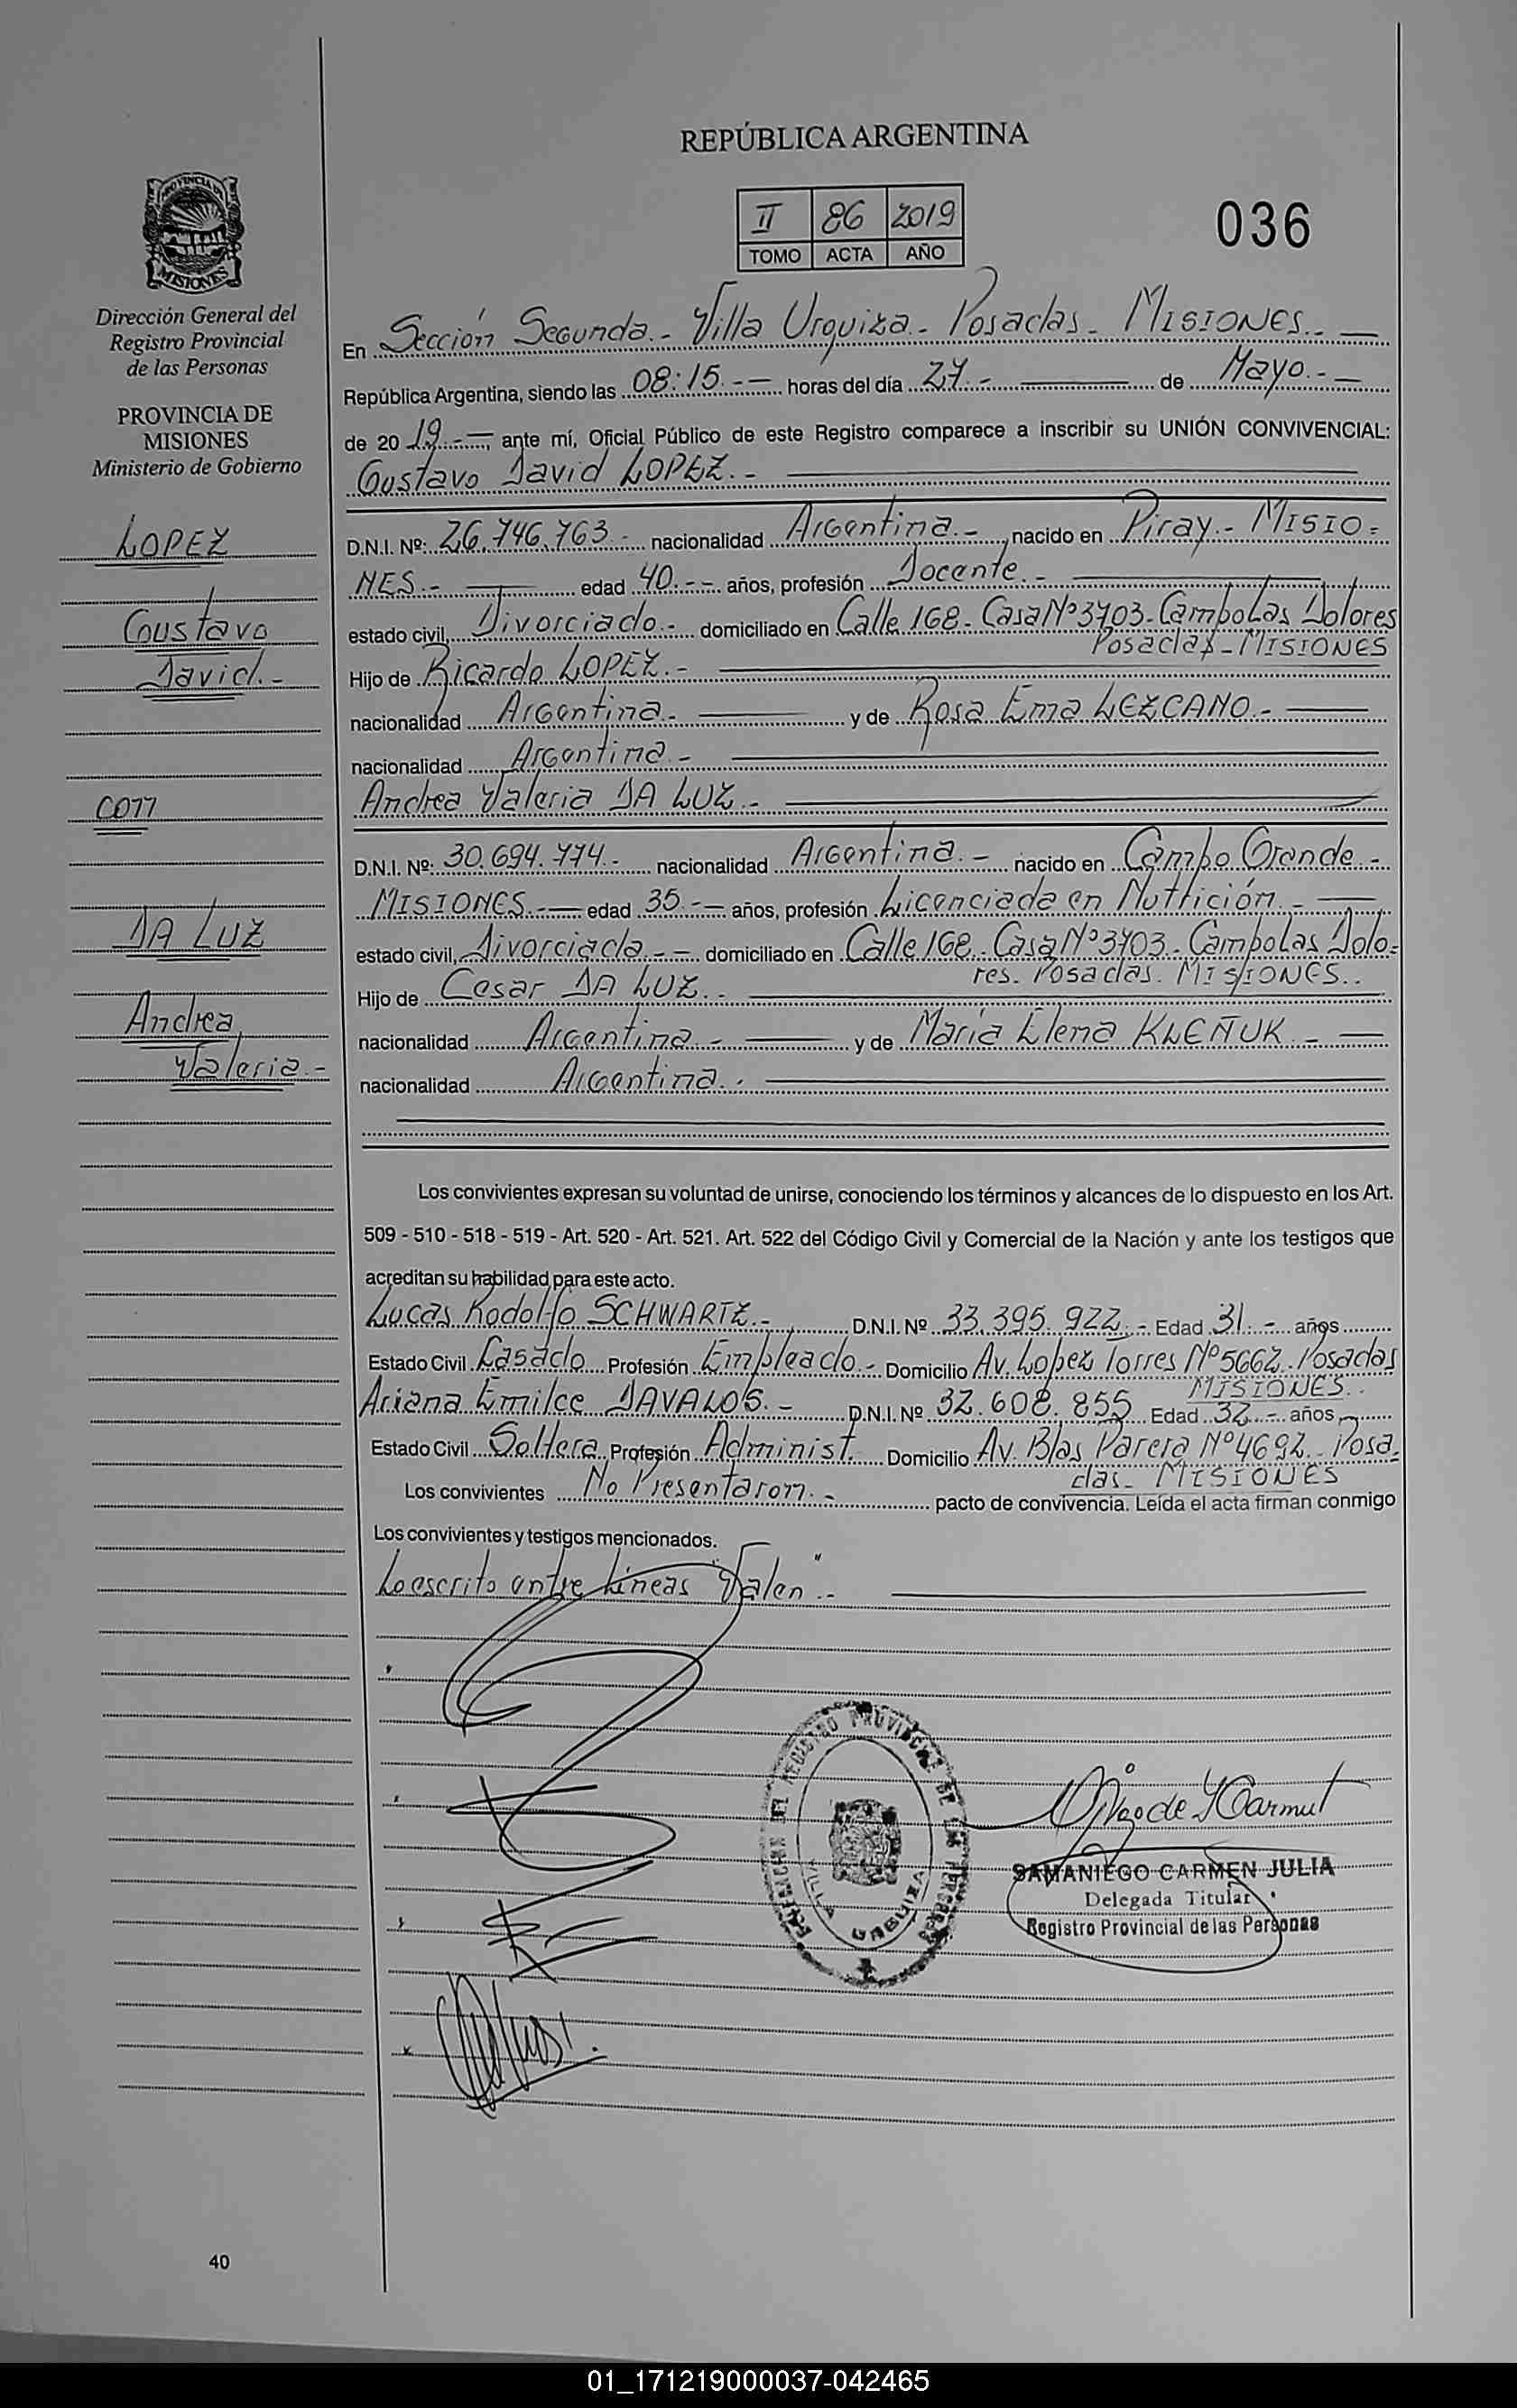 REPÚBLICA ARGENTINA
II 86 2019
TOMO ACTA AÑO
036
PROVINCIA DE
MISIONES
Dirección General del
Registro Provincial
de las Personas
PROVINCIA DE
MISIONES
Ministerio de Gobierno
LOPEZ
Gustavo
David.-
con
DA LUZ
Andrea
Valeria.-
En Sección Segunda.- Villa Urquiza.- Posadas.- MISIONES.-
República Argentina, siendo las 08:15.-- horas del día 27.- de Mayo.-
de 20 19.- ante mí, Oficial Público de este Registro comparece a inscribir su UNIÓN CONVIVENCIAL:
Gustavo David LOPEZ.-
D.N.I. Nº: 26.746.763.- nacionalidad Argentina.- nacido en Piray.- MISIO-
NES.- edad 40.-- años, profesión Docente.-
estado civil, Divorciado.- domiciliado en Calle 168- Casa Nº3703- Cambolas Dolores
Posadas-MISIONES
Hijo de Ricardo LOPEZ.-
nacionalidad Argentina.- y de Rosa Ema LEZCANO.-
nacionalidad Argentina.-
Andrea Valeria DA LUZ.-
D.N.I. Nº: 30.694.774.- nacionalidad Argentina.- nacido en Campo Grande.-
MISIONES.- edad 35.-- años, profesión Licenciada en Nutrición.-
estado civil, Divorciada.-- domiciliado en Calle 168- Casa Nº3703- Cambolas Dolo-
res- Posadas. MISIONES..
Hijo de Cesar DA LUZ.-
nacionalidad Argentina.- y de Maria Elena KLEÑUK.-
nacionalidad Argentina.-
Los convivientes expresan su voluntad de unirse, conociendo los términos y alcances de lo dispuesto en los Art.
509 - 510 - 518 - 519 - Art. 520 - Art. 521. Art. 522 del Código Civil y Comercial de la Nación y ante los testigos que
acreditan su habilidad para este acto.
Lucas Rodolfo SCHWARTZ.- D.N.I. Nº 33.395.922.- Edad 31.- años
Estado Civil Casado Profesión Empleado.- Domicilio Av. Lopez Torres Nº5662- Posadas
MISIONES..
Ariana Emilce DAVALOS.- D.N.I. Nº 32.608.855 Edad 32.- años
Estado Civil Soltera Profesión Administ. Domicilio Av. Blas Parera Nº4692- Posa-
das- MISIONES
Los convivientes No Presentaron.- pacto de convivencia. Leída el acta firman conmigo
Los convivientes y testigos mencionados.
Lo escrito entre líneas "Valen".-
DIRECCION DEL REGISTRO PROVINCIAL DE LAS PERSONAS
VILLA URQUIZA
SAMANIEGO CARMEN JULIA
Delegada Titular
Registro Provincial de las Personas
40
01_171219000037-042465